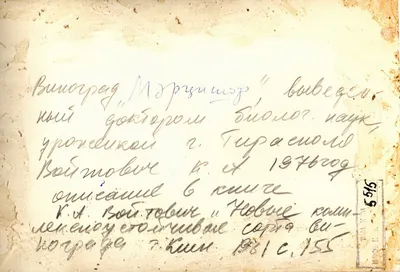 Виноград "Мэрцишор", выведен-
ный доктором биолог. наук,
уроженкой г. Тирасполя
Войтович К. А 1976 год
описание в книге
К.А. Войтович "Новые комп-
лексноустойчивые сорта ви-
нограда г. Киш. 1981 с. 155
5515